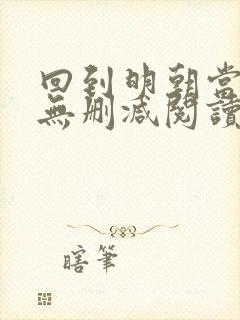 回到明朝當
無刪減閱讀
瞎筆